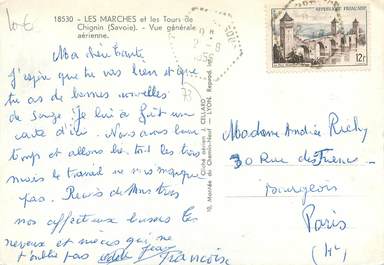 10€
18530 - LES MARCHES et les Tours de
Chignin (Savoie). - Vue générale
aérienne.
Ma chère tante
J'espère que tu vas bien et que
tu as de bonnes nouvelles
de Je lui ai fait une
carte d'ici. Nous avons beau
temps et allons bien tous les trois
mais le travail ne nous manque
pas. Reçois de nous trois
nos affectueux baisers tes
neveux et nièces qui ne
t'oublie pas Francoise
73
Cliché aérien J. CELLARD
10, Montée du Chemin-Neuf - LYON.
REPUBLIQUE FRANÇAISE
12F
Madame Andrée
30 Rue des Francs
Bourgeois
Paris
(4e)